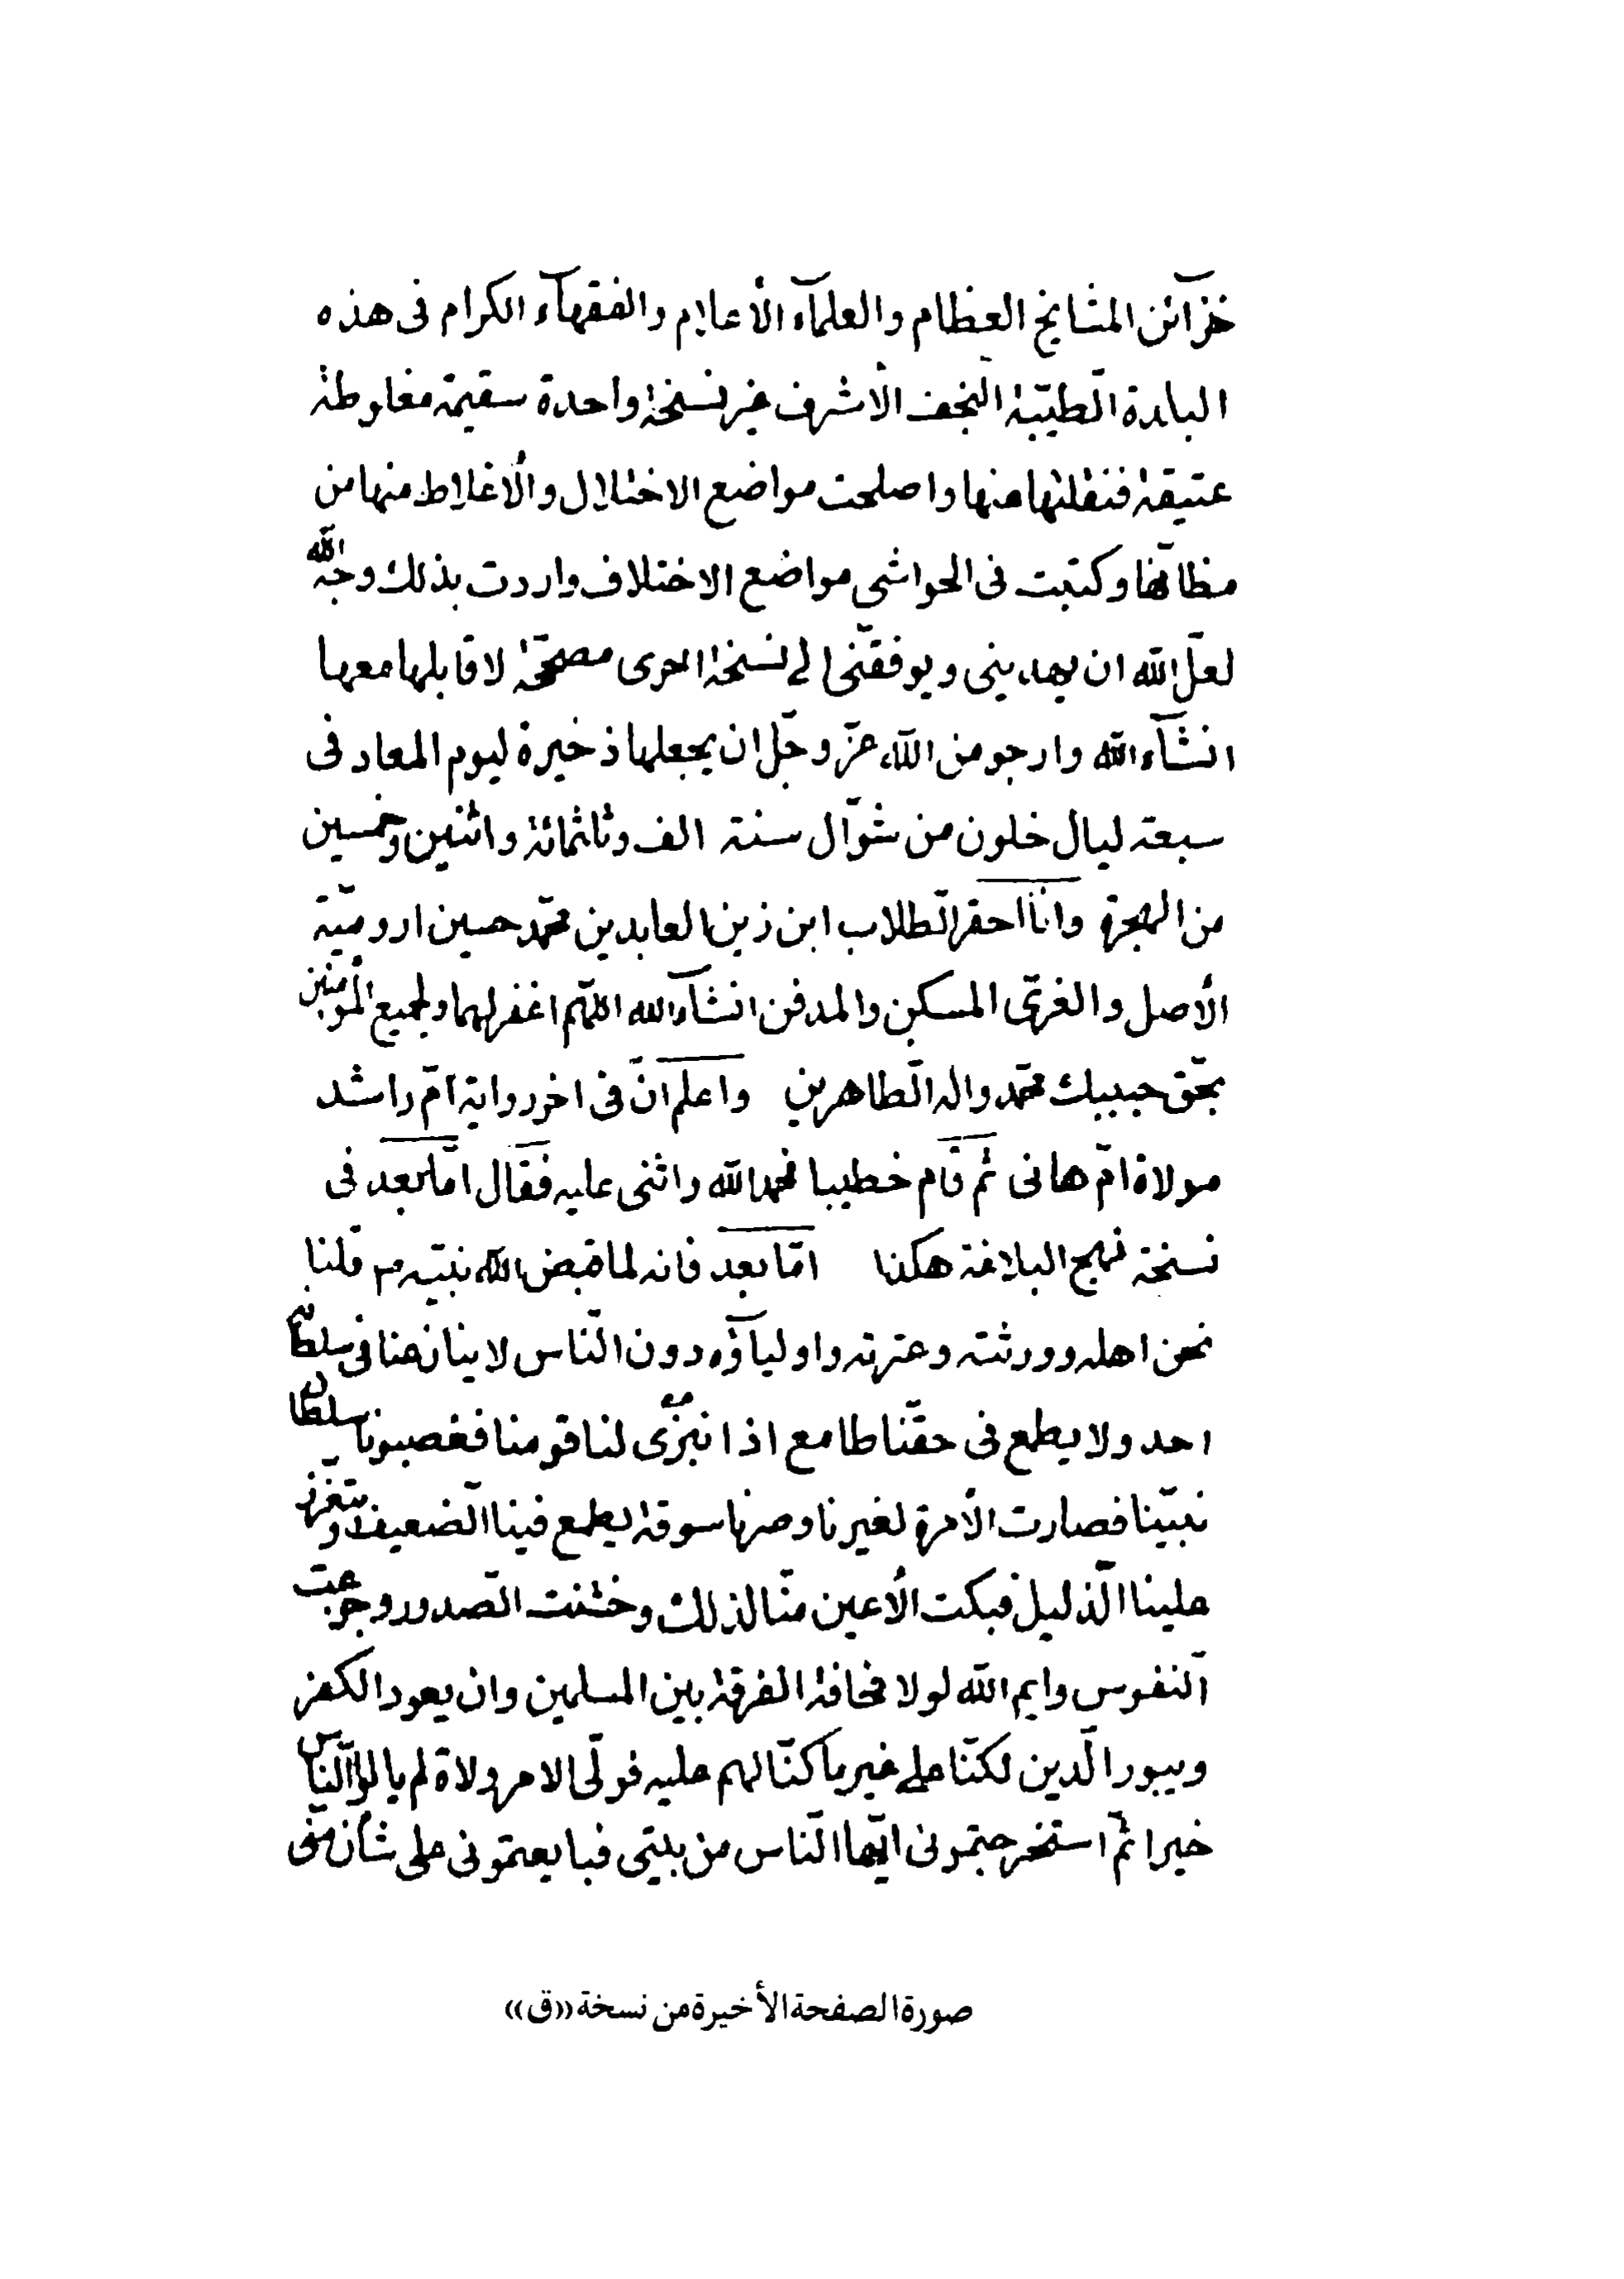 خزآئن المشايخ العظام والعلمآء الأعلام والفقهآء الكرام فى هذه
البلدة الطّيّبة النّجف الأشرف غير نسخة واحدة سقيمة مغلوطة
عتيقة فنقلتها منها واصلحت مواضع الاختلال والأغلاط منها من
مظانّها وكتبت فى الحواشى مواضع الاختلاف واردت بذلك وجه الله
لعلّ الله ان يهدينى ويوفقنى الى نسخة اخرى مصحّحة لاقابلها معها
انشآء الله وارجو من الله عزّ وجلّ ان يجعلها ذخيرة ليوم المعاد فى
سبعة ليال خلون من شوّال سنة الف وثلثمائة واثنين وخمسين
من الهجرة وانا احقر الطّلاب ابن زين العابدين محمّد حسين اروميّة
الأصل والغرىّ المسكن والمدفن انشآء الله اللّهم اغفر لهما ولجميع المؤمنين
بحّق حبيبك محمّد واله الطّاهرين واعلم انّ فى اخر رواية امّ راشد
مولاة امّ هانى ثم قام خطيبا فحمد الله واثنى عليه فقال امّا بعد فى
نسخة نهج البلاغة هكذا امّا بعد فانه لما قبض الله نبيّه ص قلنا
نحن اهله وورثته وعترته واوليآؤه دون النّاس لا ينازعنا فى سلطانه
احد ولا يطمع فى حقّنا طامع اذا نبزى لنا قومنا فغصبونا سلطان
نبيّنا فصارت الأمرة لغيرنا وصرنا سوقة يطمع فينا الضّعيف ويتعزز
علينا الّذليل فبكت الأعين منّا لذلك وخشنت الصّدور وجزعت
النّفوس وايم الله لولا مخافة الفرقة بين المسلمين وان يعود الكفر
ويبور الّدين لكنّا على غير ما كنّا لهم عليه فولّى الامر ولاة لم يالوا النّاس
خيرا ثمّ استخرجتمونى ايّها النّاس من بيتى فبايعتمونى على شأن منّى
صورة الصفحة الأخيرة من نسخة «ق»